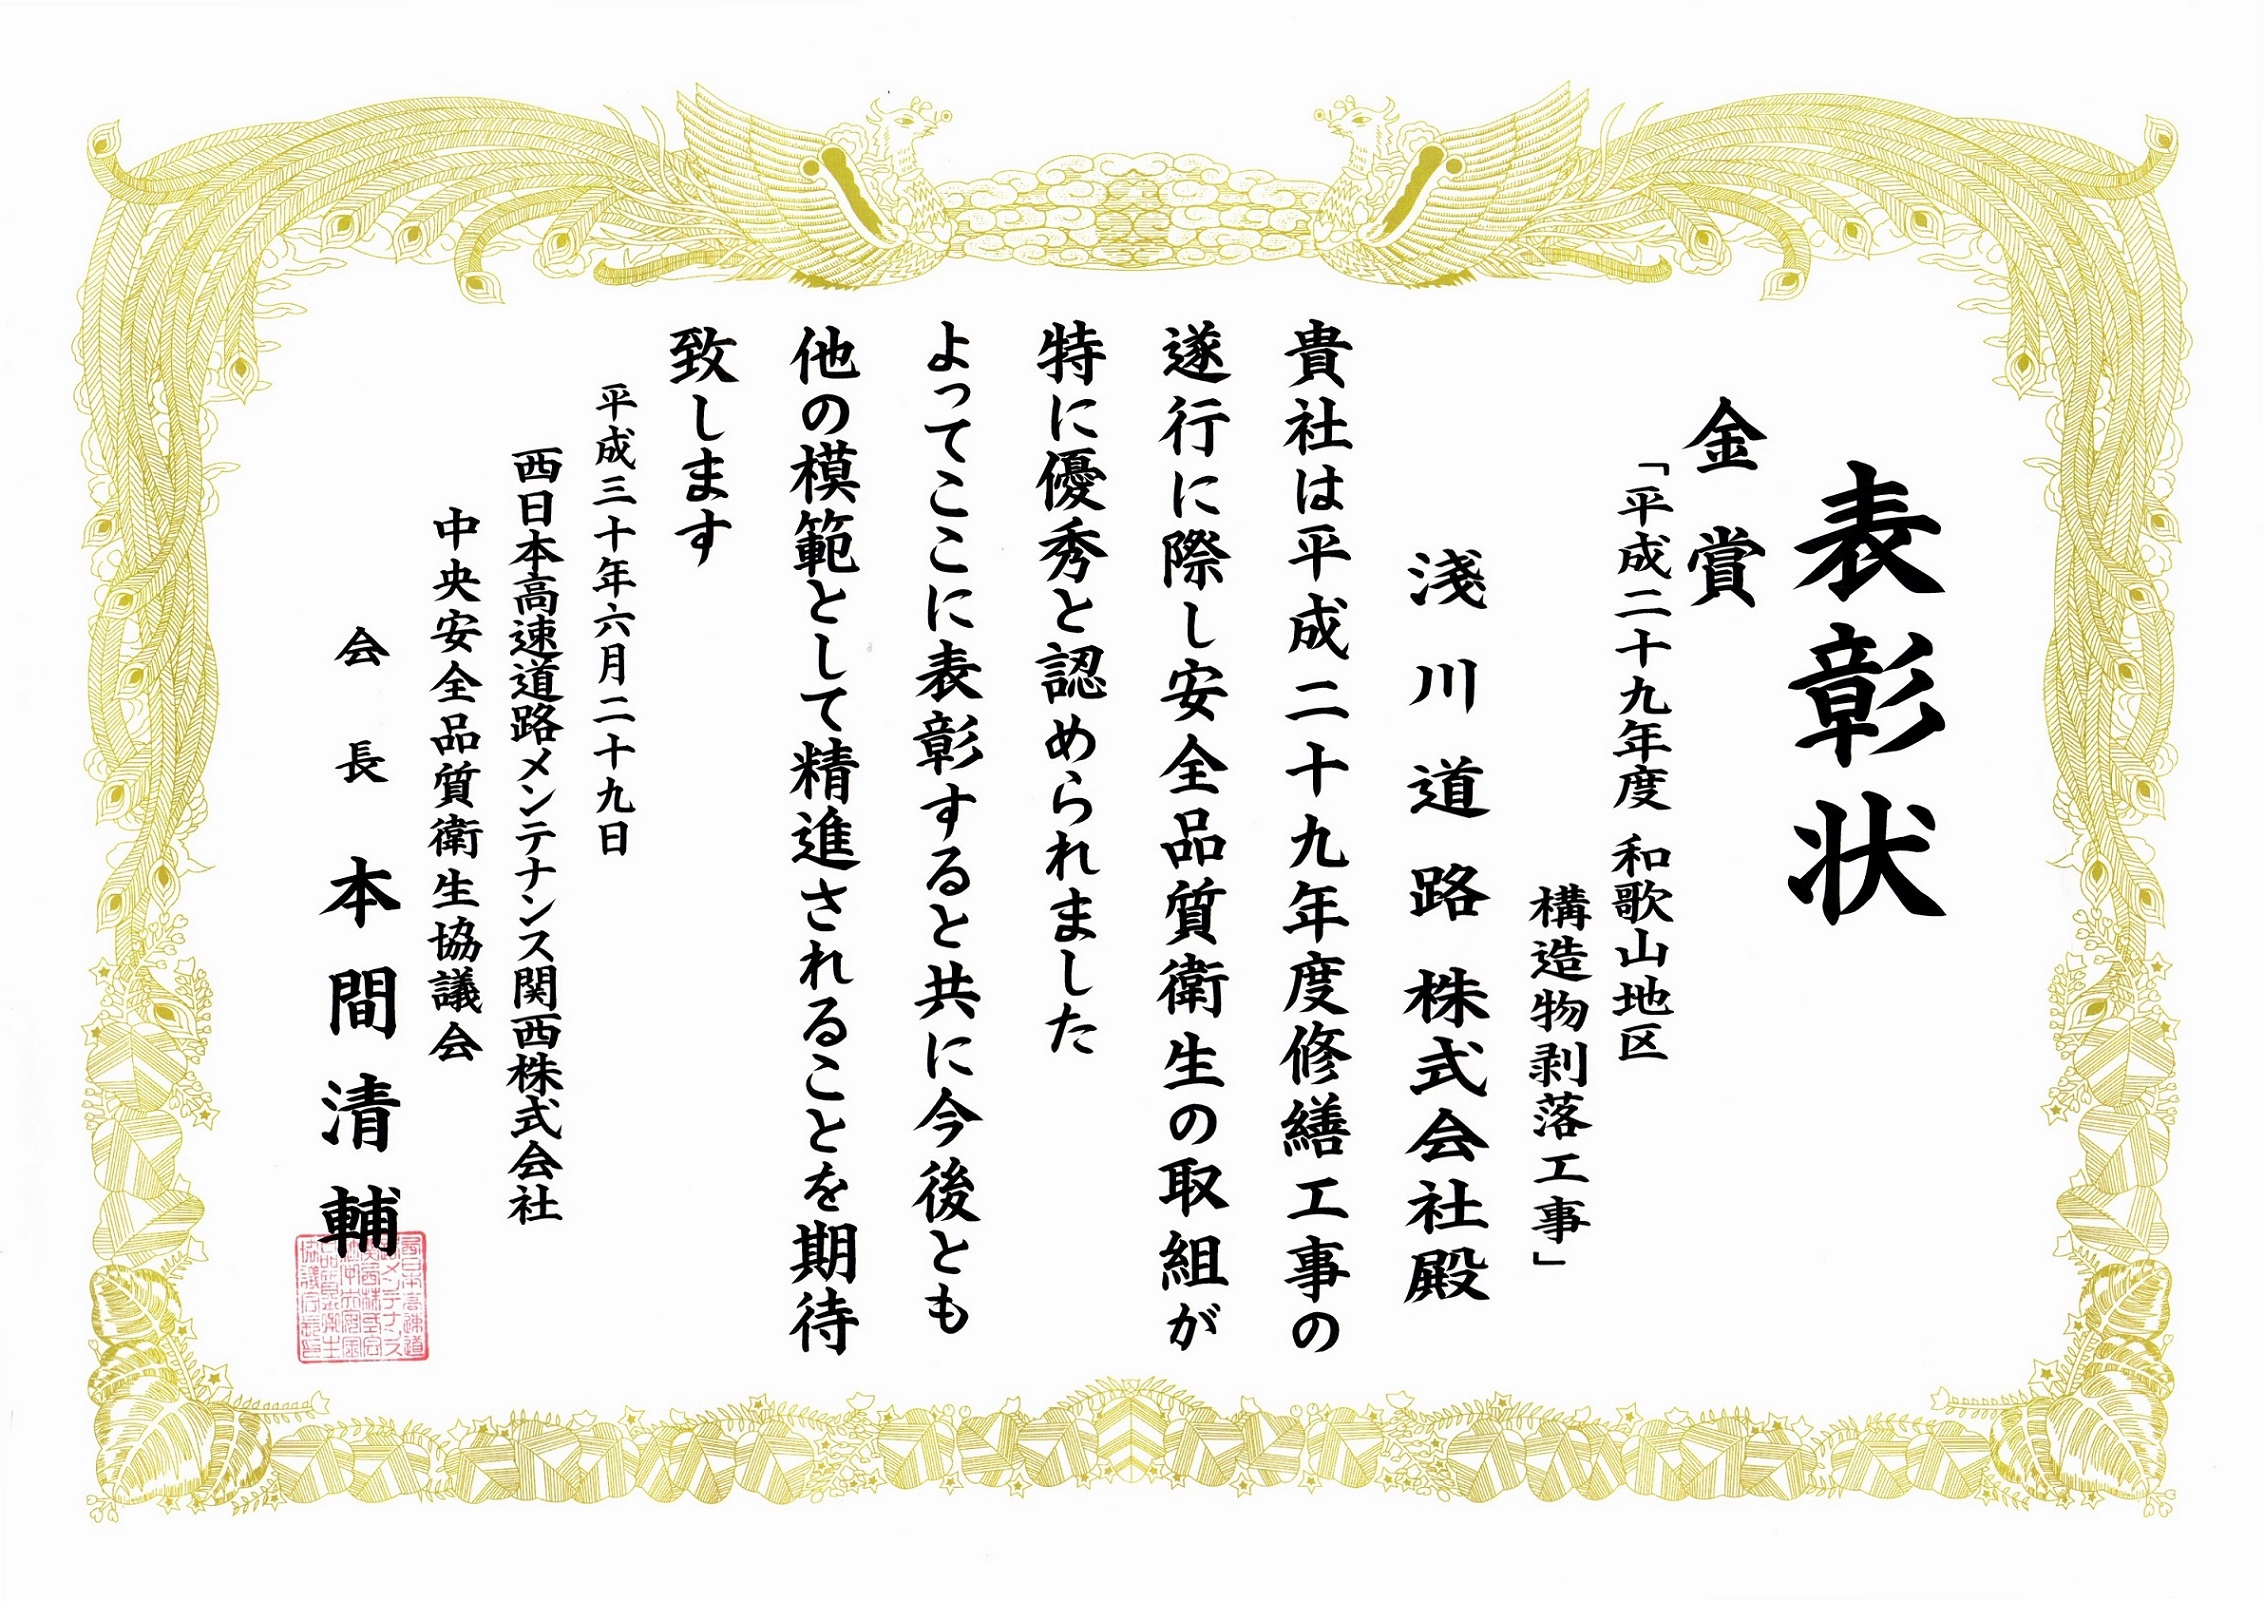 表彰状
金賞
「平成二十九年度 和歌山地区
構造物剥落工事」
淺川道路株式会社殿
貴社は平成二十九年度修繕工事の
遂行に際し安全品質衛生の取組が
特に優秀と認められました
よってここに表彰すると共に今後とも
他の模範として精進されることを期待
致します
平成三十年六月二十九日
西日本高速道路メンテナンス関西株式会社
中央安全品質衛生協議会
会長 本間清輔